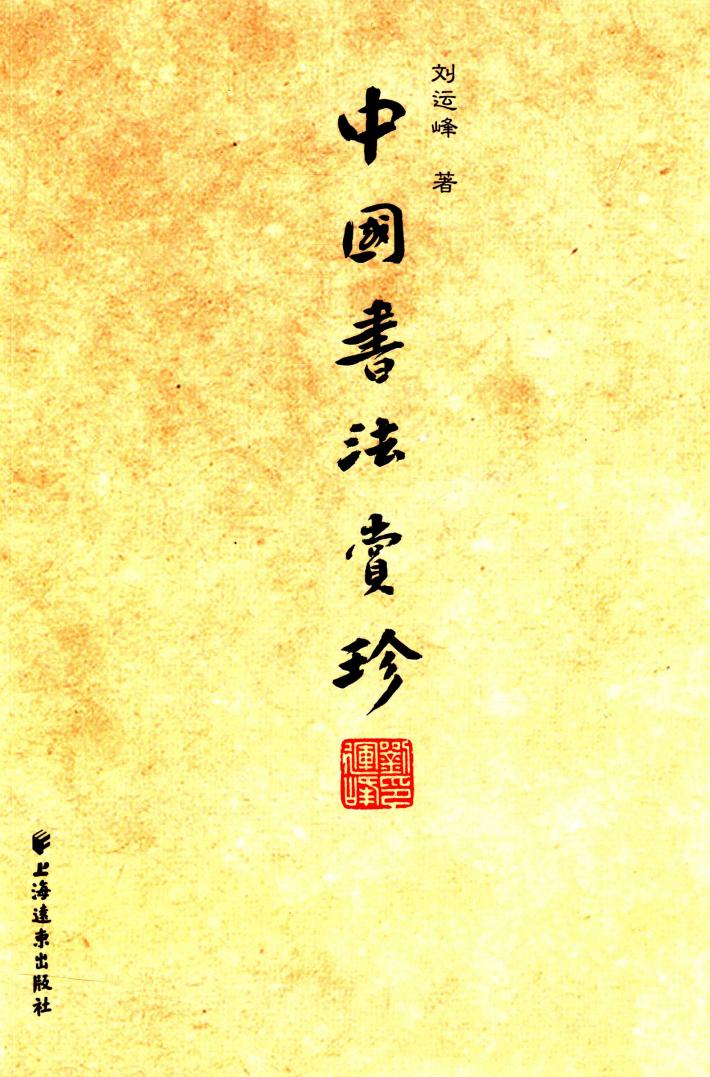 刘运峰 著
中國書法赏珍
劉運峰印
上海遠東出版社